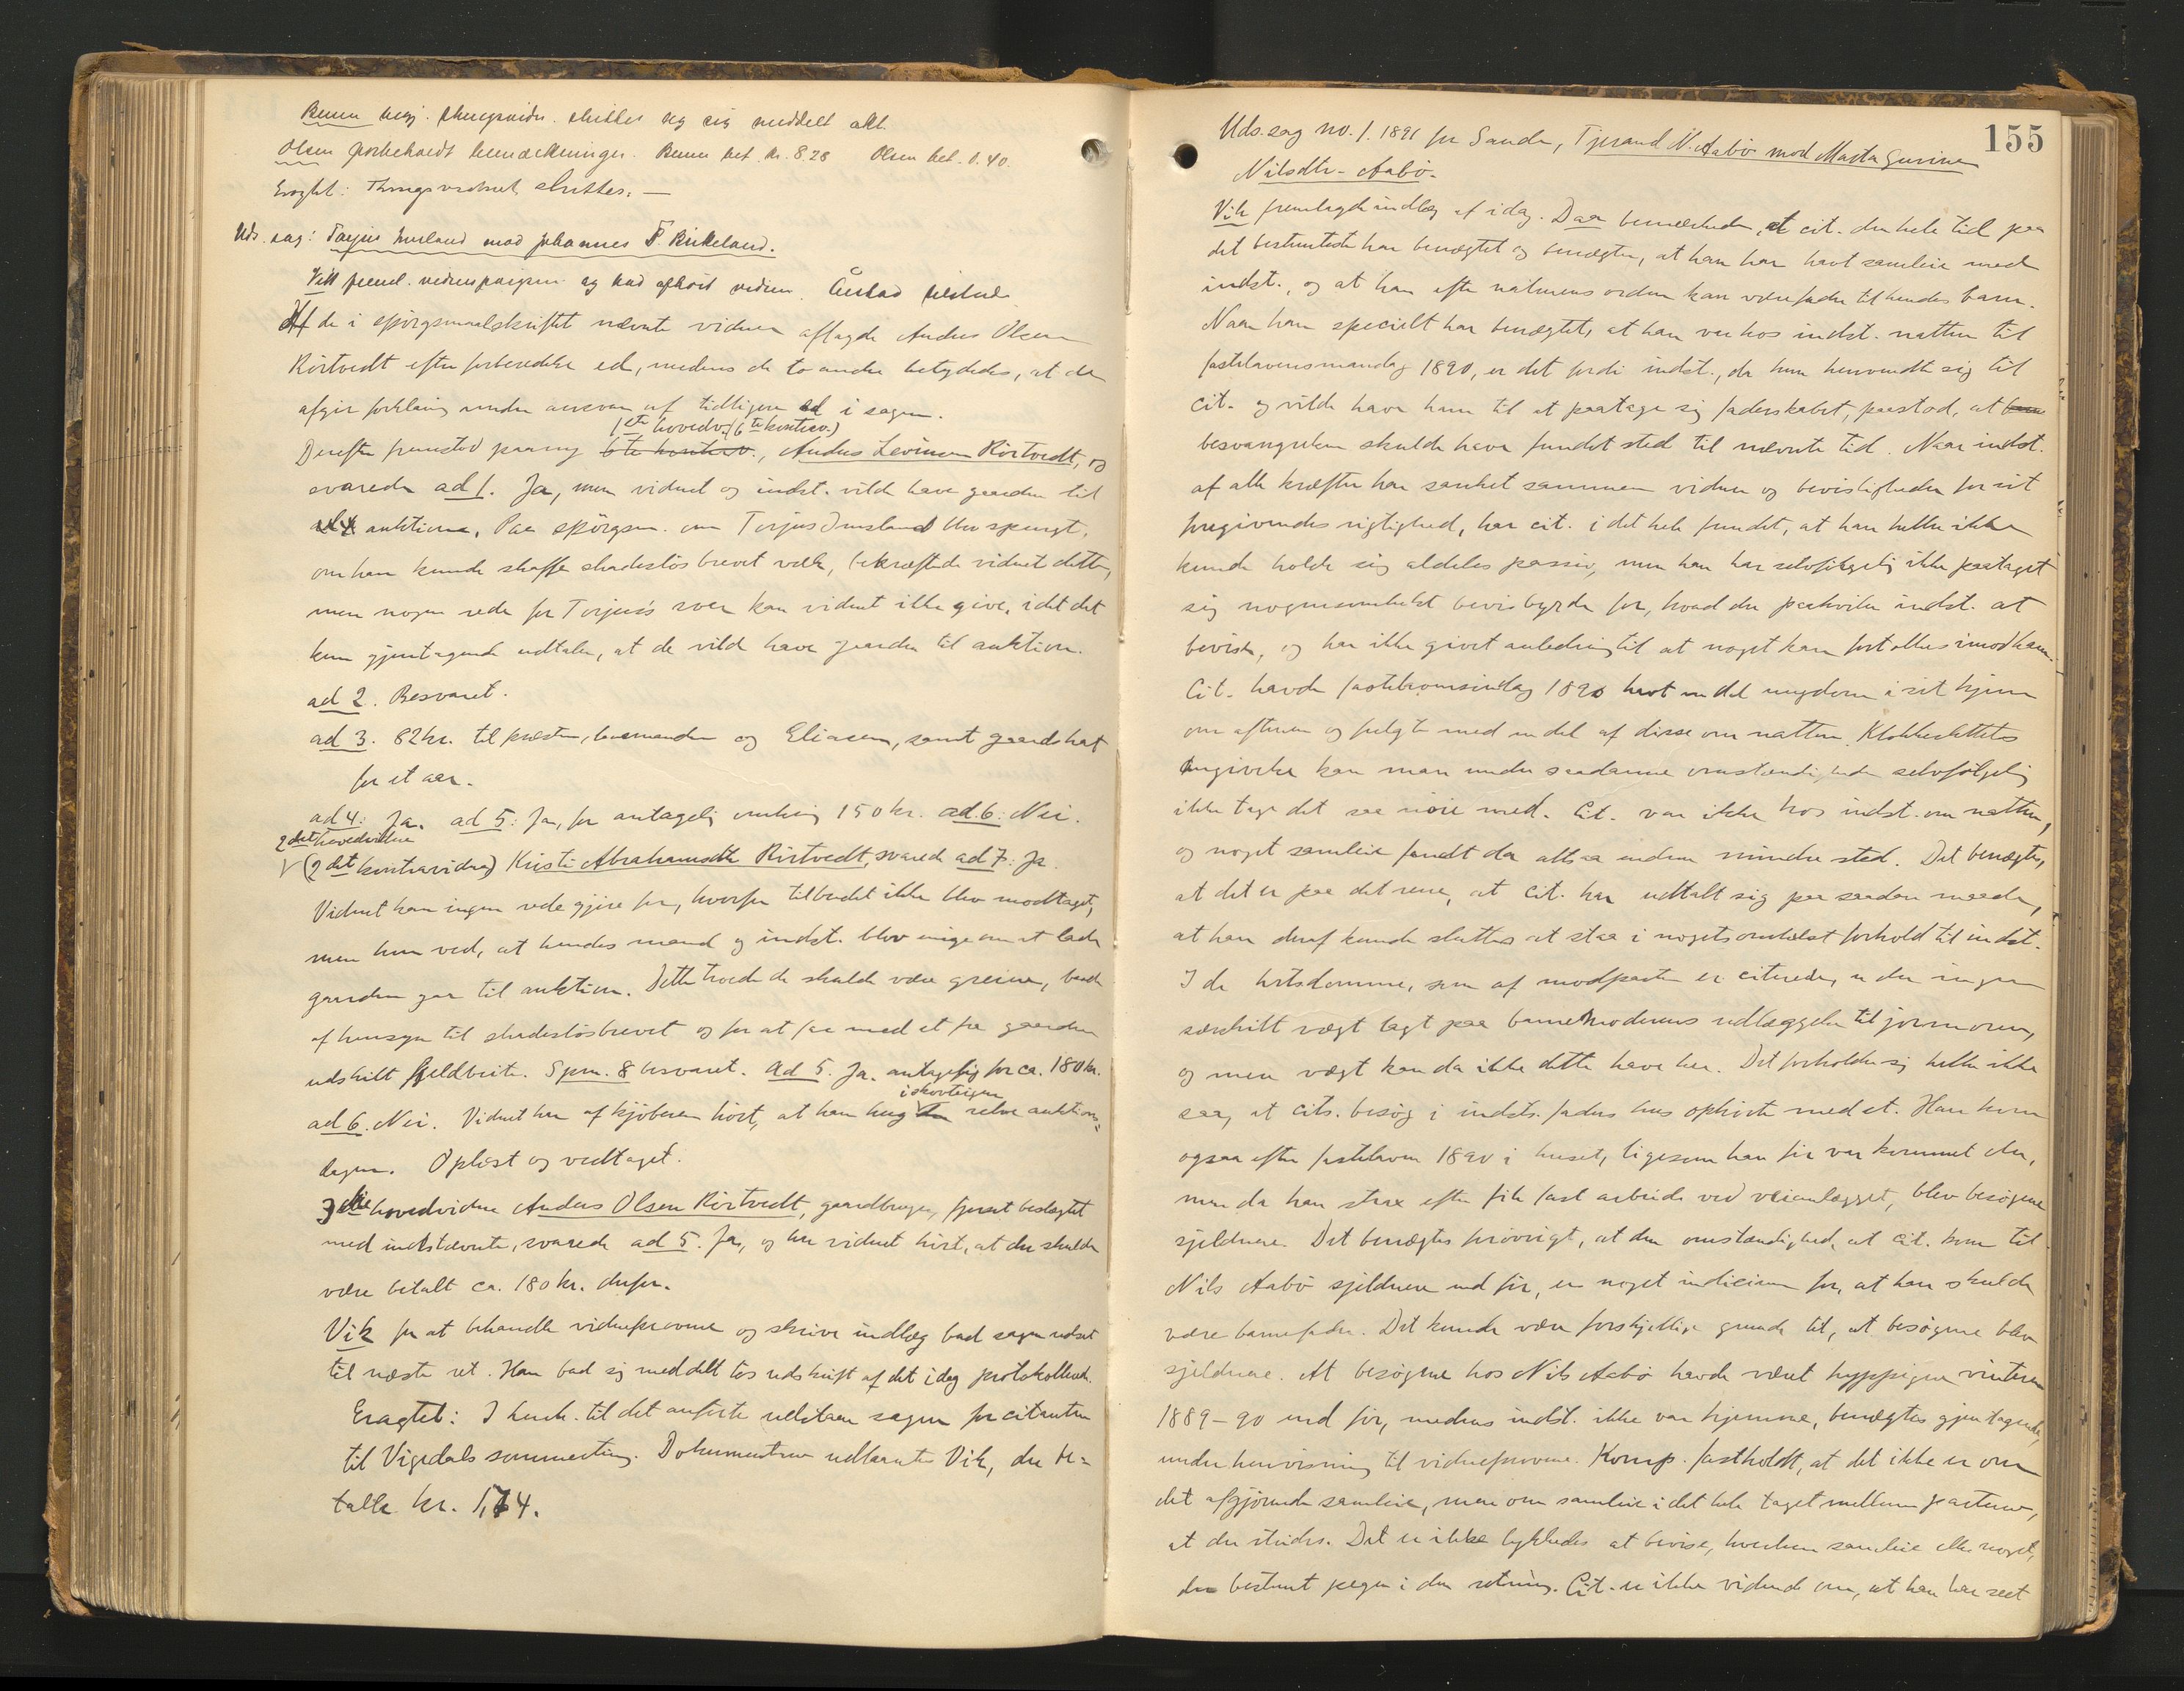 Benen begj. thingsvidn. sluttet og sig meddelt akt.
Olsen forbeholdt bemærkninger. Benen bet. kr. 8.28 Olsen bet. 0.40.
Eragtet: Thingsvidnet sluttes. —
Uds. sag: Torjus Imsland mod Johannes T. Birkeland.
Vik freml. vidnespørgsm. og bad afhørt vidner. Årstad tilstede.
Af de i spørgsmaalskriftet nævnte vidner aflagde Anders Olsen
Rörtvedt efter forberedelse ed, medens de to andre betydedes, at de
afgir forklaring under ansvar af tidligere ed i sagen.
1ste hovedv. (6te kontrav.)
Derefter fremstod paany 6te kontrav., Anders Levinsen Rörtvedt, og
svarede ad 1. Ja, men vidnet og indst. vilde have gaarden til
auktion. Paa spörgsm. om Torjus Imsland blev spurgt,
om han kunde skaffe skadeslösbrevet væk, bekræftede vidnet dette,
men nogen rede for Torjus's svar kan vidnet ikke give, idet det
kun gjentagende udtaler, at de vilde have gaarden til auktion.
ad 2. Besvaret.
ad 3. 82 kr. til præsten, lensmanden og Eliasen, samt gaardskat
for et aar.
ad 4: Ja. ad 5: Ja, for antagelig omkring 150 kr. ad 6: Nei.
2det hovedvidne
(2det kontravidne) Kristi Abrahamsdtr Rörtvedt, svarede ad 7: Ja.
Vidnet kan ingen rede gjøre for, hvorfor tilbudet ikke blev modtaget,
men hun ved, at hendes mand og indst. blev enige om at lade
gaarden gaa til auktion. Dette troede de skulde være greiere, baade
af hensyn til skadeslösbrevet og for at faa med et fra gaarden
udskilt fjeldbeite. Spm. 8 besvaret. Ad 5. Ja. antagelig for ca. 180 kr.
i skovteigen
ad 6. Nei. Vidnet har af kjöberen hört, at han hug selve auktions-
dagen. Oplæst og vedtaget.
3die hovedvidne Anders Olsen Rörtvedt, gaardbruger, fjernt beslægtet
med indstævnte, svarede ad 5. Ja, og har vidnet hört, at der skulde
være betalt ca. 180 kr. derfor.
Vik for at behandle vidneprovene og skrive indlæg bad sagen udsat
til næste ret. Han bad sig meddelt lös udskrift af det idag protokollerede.
Eragtet: I henh. til det anførte udstaar sagen for citanten
til Vigedals sommerting. Dokumenterne udlaantes Vik, der be-
talte kr. 1,64.
155
Uds. sag no. 1. 1891 fra Sande, Tjerand N. Aabö mod Marta Gurine
Nilsdtr. Aabö.
Vik fremlagde indlæg af idag. Daa bemærkede, at cit. den hele tid paa
det bestemteste har benægtet og benægter, at han har havt samleie med
indst., og at han efter naturens orden kan være fader til hendes barn.
Naar han specielt har benægtet, at han var hos indst. natten til
fastelavensmandag 1890, er det fordi indst., da hun henvendte sig til
cit. og vilde have ham til at paatage sig faderskabet, paastod, at
besvangrelsen skulde have fundet sted til nævnte tid. Naar indst.
af alle kræfter har sanket sammen vidner og bevisligheder for sit
foregivendes rigtighed, har cit. i det hele fundet, at han heller ikke
kunde holde sig aldeles passiv, men han har selvfölgelig ikke paataget
sig nogensomhelst bevisbyrde for, hvad der paahviler indst. at
bevise, og har ikke givet anledning til at noget kan fortolkes imod ham.
Cit. havde fastelavnssöndag 1890 havt en del ungdom i sit hjem
om aftenen og fulgte med en del af disse om natten. Klokkeslettets
angivelse kan man under saadanne omstændigheder selvfölgelig
ikke tage det saa nöie med. Cit. var ikke hos indst. om natten,
og noget samleie fandt da altsaa endnu mindre sted. Det benægtes,
at det er paa det rene, at cit. har udtalt sig paa saadan maade,
at han deraf kunde sluttes at staa i nogetsomhelst forhold til indst.
I de hrtsdomme, som af modparten er citerede, er der ingen
særskilt vægt lagt paa barnemoderens udlæggelse til jormoren,
og mere vægt kan da ikke dette have her. Det forholder sig heller ikke
saa, at cits. besög i indsts. faders hus ophörte med et. Han kom
ogsaa efter fastelaven 1890 i huset, ligesom han för var kommet der,
men da han strax efter fik fast arbeide ved veianlægget, blev besögene
sjeldnere. Det benægtes forövrigt, at den omstændighed, at cit. kom til
Nils Aabö sjeldnere end för, er noget indicium for, at han skulde
være barnefader. Det kunde være forskjellige grunde til, at besögene blev
sjeldnere. At besögene hos Nils Aabö havde været hyppigere vinteren
1889–90 end för, medens indst. ikke var hjemme, benægtes gjentagende,
under henvisning til vidneprovene. Komp. fastholdt, at det ikke er om
det afgjörende samleie, men om samleie i det hele taget mellem parterne,
at der strides. Det er ikke lykkedes at bevise, hverken samleie eller noget,
der bestemt peger i den retning. Cit. er ikke vidende om, at han har seet